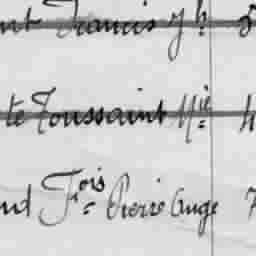 nt Francis J h
te Toussaint Mie
nd Fois Pierre Ange 7